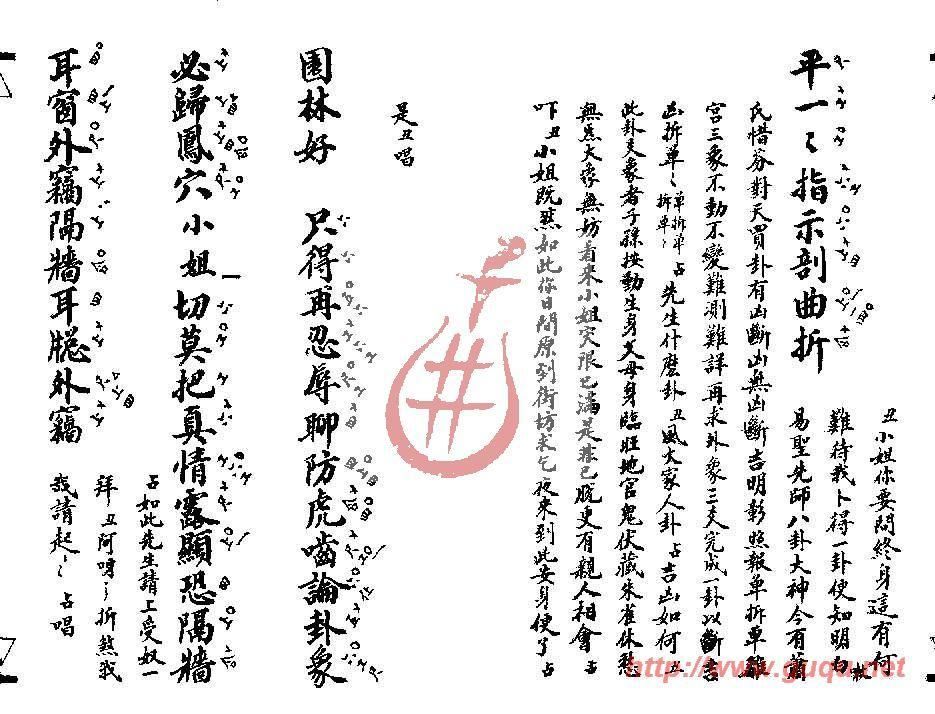 平一〻指示剖曲折
丑小姐你要問終身這有何
難待我卜得一卦便知明白
易聖先師八卦大神今有蕭
氏惜芬對天買卦有凶斷凶無凶斷吉明彰照報單拆單
宮三象不動不變難測難詳再求卦象三爻完成一卦以斷吉
凶拆單〻單拆單拆單〻占先生什麽卦丑風火家人卦占吉凶如何丑
此卦爻象者子孫按動生身父母身臨旺地官鬼伏藏朱雀休愁
無炁大象無妨看來小姐灾限已滿是非已脫更有親人相會占
吓丑小姐既然如此你日間原到街坊求乞夜來到此安身便了占
是丑唱
園林好 只得再忍辱聊防虎嚙論卦象
必歸鳳穴小姐切莫把真情露顯恐隔牆
占如此先生請上受奴一
拜丑阿呀〻折煞我
耳窗外竊隔牆耳牕外竊 我請起〻占唱
http://www.guqu.net